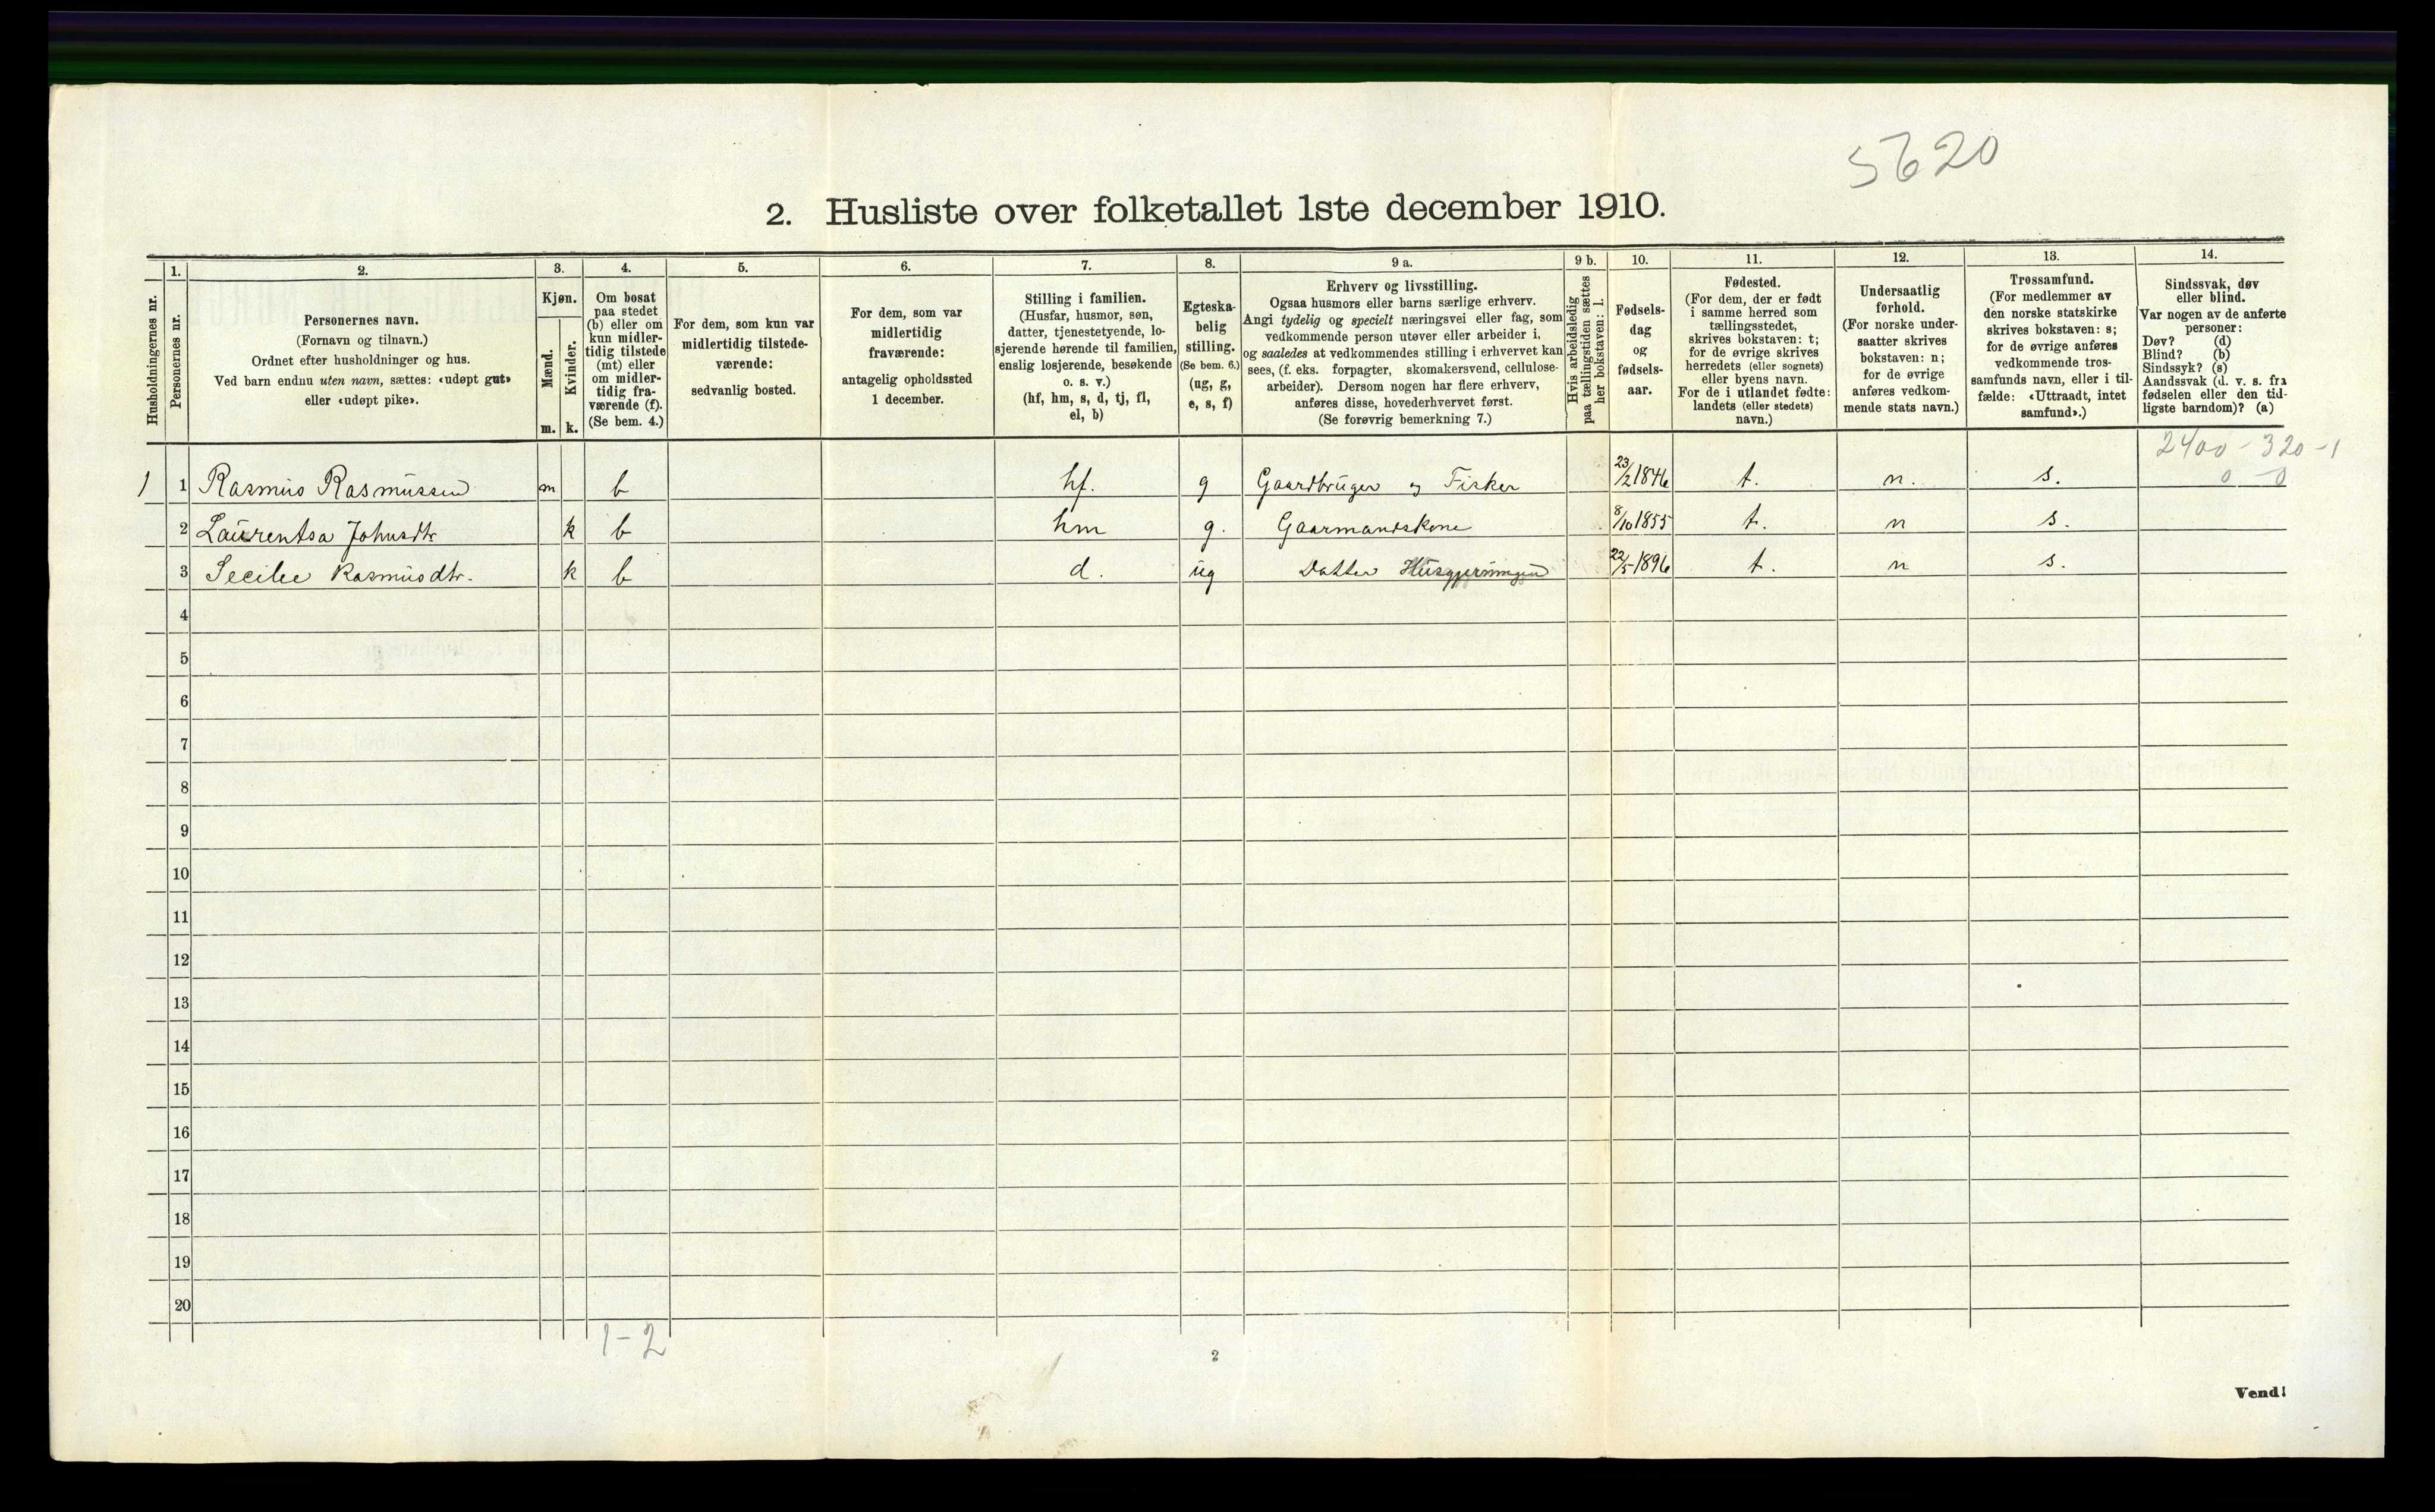 5620
2. Husliste over folketallet 1ste december 1910.
Husholdningernes nr.
1.
Personernes nr.
2.
Personernes navn.
(Fornavn og tilnavn.)
Ordnet efter husholdninger og hus.
Ved barn endnu uten navn, sættes: «udøpt gut»
eller «udøpt pike».
3.
Kjøn.
Mænd.
Kvinder.
m. k.
4.
Om bosat
paa stedet
(b) eller om
kun midler-
tidig tilstede
(mt) eller
om midler-
tidig fra-
værende (f).
(Se bem. 4.)
5.
For dem, som kun var
midlertidig tilstede-
værende:
sedvanlig bosted.
6.
For dem, som var
midlertidig
fraværende:
antagelig opholdssted
1 december.
7.
Stilling i familien.
(Husfar, husmor, søn,
datter, tjenestetyende, lo-
sjerende hørende til familien,
enslig losjerende, besøkende
o. s. v.)
(hf, hm, s, d, tj, fl,
el, b)
8.
Egteska-
belig
stilling.
(Se bem. 6.)
(ug, g,
e, s, f)
9 a.
Erhverv og livsstilling.
Ogsaa husmors eller barns særlige erhverv.
Angi tydelig og specielt næringsvei eller fag, som
vedkommende person utøver eller arbeider i,
og saaledes at vedkommendes stilling i erhvervet kan
sees, (f. eks. forpagter, skomakersvend, cellulose-
arbeider). Dersom nogen har flere erhverv,
anføres disse, hovederhvervet først.
(Se forøvrig bemerkning 7.)
9 b.
Hvis arbeidsledig
paa tællingstiden sættes
her bokstaven: l.
10.
Fødsels-
dag
og
fødsels-
aar.
11.
Fødested.
(For dem, der er født
i samme herred som
tællingsstedet,
skrives bokstaven: t;
for de øvrige skrives
herredets (eller sognets)
eller byens navn.
For de i utlandet fødte:
landets (eller stedets)
navn.)
12.
Undersaatlig
forhold.
(For norske under-
saatter skrives
bokstaven: n;
for de øvrige
anføres vedkom-
mende stats navn.)
13.
Trossamfund.
(For medlemmer av
den norske statskirke
skrives bokstaven: s;
for de øvrige anføres
vedkommende tros-
samfunds navn, eller i til-
fælde: «Uttraadt, intet
samfund».)
14.
Sindssvak, døv
eller blind.
Var nogen av de anførte
personer:
Døv? (d)
Blind? (b)
Sindssyk? (s)
Aandssvak (d. v. s. fra
fødselen eller den tid-
ligste barndom)? (a)
2400 - 320 - 1
0 - 0
1 1 Rasmus Rasmussen m b hf. g Gaardbruger og Fisker 23/2 1846 t. n. s.
2 Laurentsa Johnsdtr k b hm g. Gaarmandskone 8/10 1855 t. n s.
3 Secilie Rasmusdtr. k b d. ug Datter Husgjerningen 22/5 1896 t. n s.
4
5
6
7
8
9
10
11
12
13
14
15
16
17
18
19
20
1-2
2
Vend!